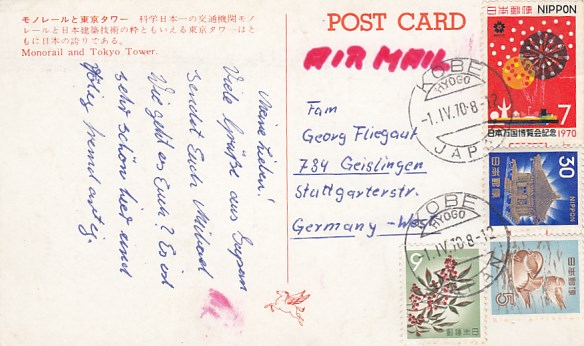 モノレールと東京タワー 科学日本一の交通機関モノ
レールと日本建築技術の粋ともいえる東京タワーはと
もに日本の誇りである。
Monorail and Tokyo Tower.
POST CARD
AIR MAIL
Meine Lieben!
Viele Grüße aus Japan
sendet Euch
Wie geht es Euch? Es ist
sehr schön hier und
völlig fremdartig.
Fam
Georg Fliegauf
734 Geislingen
Stuttgarterstr.
Germany-West
日本郵便 NIPPON
7
日本万国博覧会記念 1970
KOBE
HYOGO
-1.IV.70.8-12
JAPAN
30
日本郵便
NIPPON
KOBE
HYOGO
-1.IV.70.8-12
JAPAN
5
日本郵便
6
日本郵便